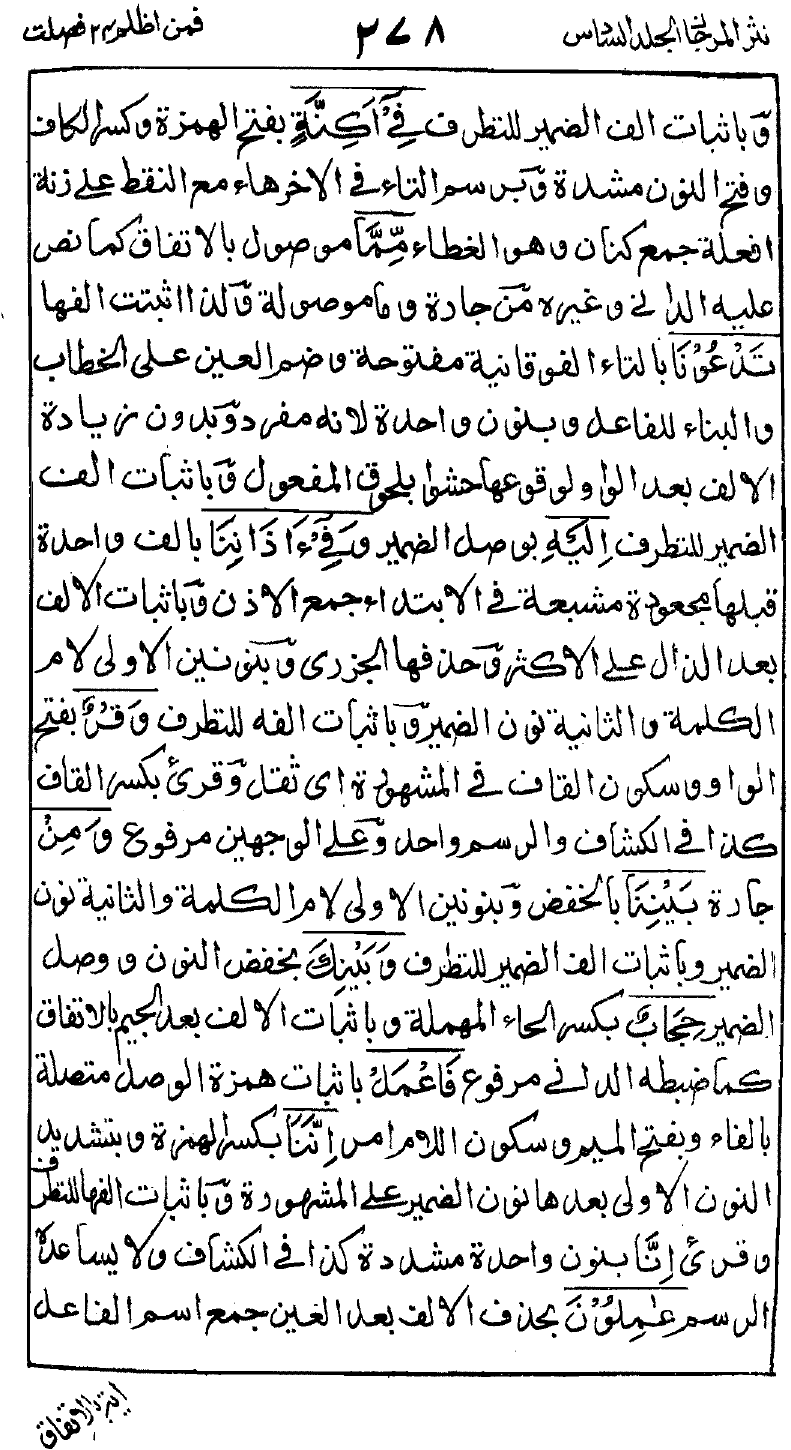 نثر المرجان الجلد السادس ٢٧٨ فمن اظلم ٢٤ فصلت
وّباثبات الف الضمير للتطرف فِيْٓ اَكِنَّةٍ بفتح الهمزة وكسر الكاف
وفتح النون مشددة وّبرسم التاء في الاخر هاء مع النقط على زنة
افعلة جمع كنان وهو الغطاء مِّمَّا موصول بالاتفاق كما نص
عليه الداني وغيره مّن جارة وما موصولة وّلذا اثبتت الفها
تَدْعُوْنَا بالتاء الفوقانية مفتوحة وضم العين على الخطاب
والبناء للفاعل وبنون واحدة لانه مفرد وّبدون زيادة
الالف بعد الواو لوقوعها حشوا بلحوق المفعول وّباثبات الف
الضمير للتطرف اِلَيْهِ بوصل الضمير وَفِيْٓ ءَاذَانِنَا بالف واحدة
قبلها مجعودة مشبعة في الابتداء جمع الاذن وّباثبات الالف
بعد الذال على الاكثر وّحذفها الجزرى وّبنونين الاولى لام
الكلمة والثانية نون الضمير وّباثبات الفه للتطرف وَقْرٌ بفتح
الواو وسكون القاف في المشهورة اى ثقل وّقرئ بكسر القاف
كذا في الكشاف والرسم واحد وّعلى الوجهين مرفوع وَمِنْ
جارة بَيْنِنَا بالخفض وّبنونين الاولى لام الكلمة والثانية نون
الضمير وباثبات الف الضمير للتطرف وَبَيْنِكَ بخفض النون ووصل
الضمير حِجَابٌ بكسر الحاء المهملة وباثبات الالف بعد الجيم بالاتفاق
كما ضبطه الداني مرفوع فَاعْمَلْ باثبات همزة الوصل متصلة
بالفاء وبفتح الميم وسكون اللام امر اِنَّنَا بكسر الهمزة وبتشديد
النون الاولى بعدها نون الضمير على المشهورة وّباثبات الفها للتطرف
وقرئ اِنَّا بنون واحدة مشددة كذا في الكشاف ولا يساعده
الرسم عٰمِلُوْنَ بحذف الالف بعد العين جمع اسم الفاعل
بالاتفاق